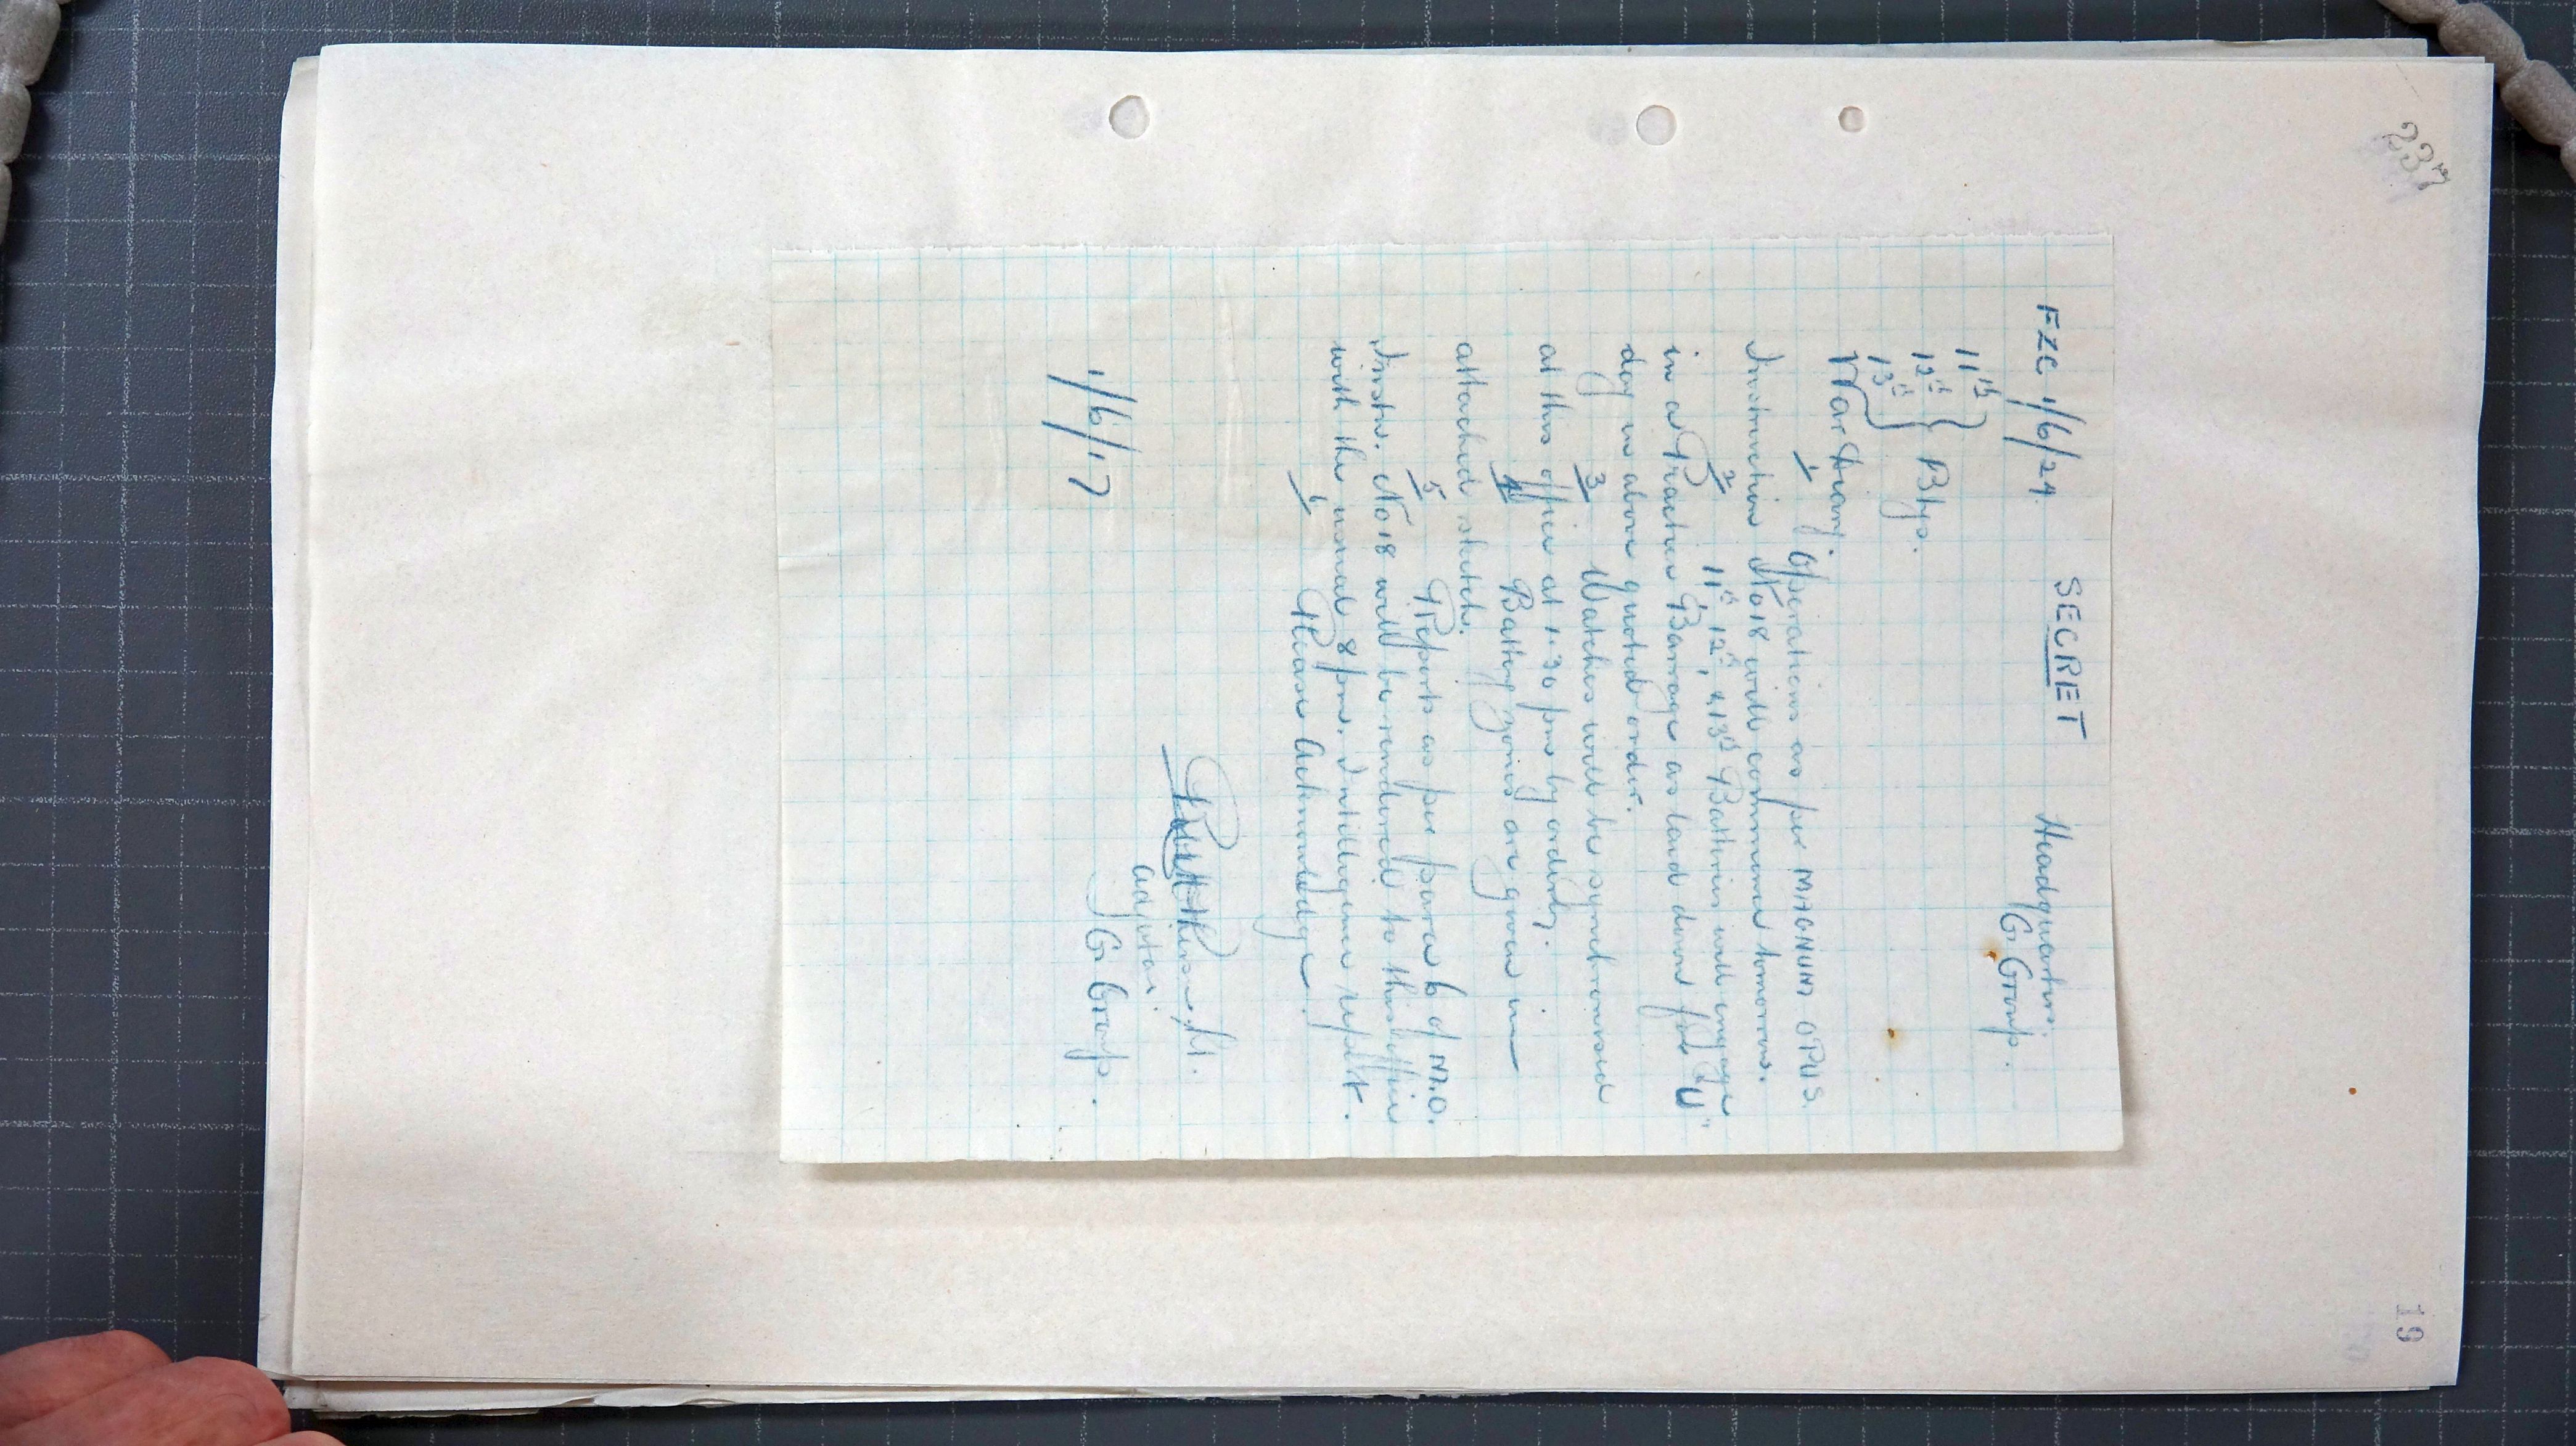 237
19
FZC 1/6/24. SECRET Headquarters.
G. Group.
11th
12th } Btys.
13th
War Diary.
1 Operations as per MAGNUM OPUS.
Instruction No 18 will commence tomorrow.
2 11th 12th, & 13th Batteries will engage
in a Practice Barrage as laid down for "U"
day in above quoted order.
3 Watches will be synchronised
at this office at 1.30 pm by orderly.
4 Battery zones are given in
attached sketch.
5 Reports as per para 6 of M.O.
Instn. No 18 will be rendered to this office
with the usual 8 pm. Intelligence report.
Please Acknowledge.
Lt.
Adjutant
G Group.
1/6/17